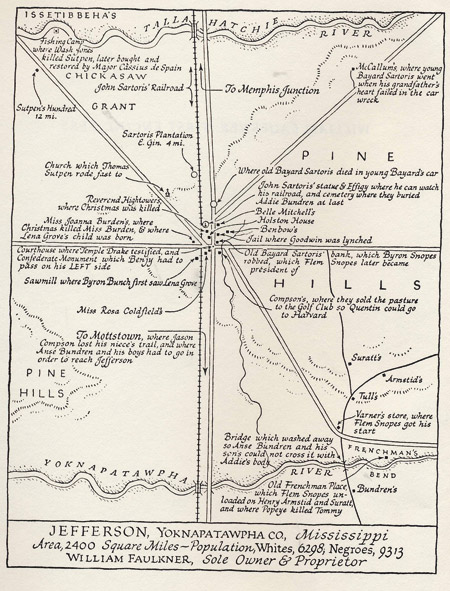 ISSETIBBEHA'S
TALLA HATCHIE
RIVER
Fishing Camp
where Wash Jones
killed Sutpen, later bought and
restored by Major Cassius de Spain
CHICKASAW
John Sartoris' Railroad
To Memphis Junction
McCallum's, where young
Bayard Sartoris went
when his grandfather's
heart failed in the car
wreck
Sutpen's Hundred
12 mi.
GRANT
Sartoris Plantation
& Gin. 4 mi.
PINE
Church which Thomas
Sutpen rode fast to
Where old Bayard Sartoris died in young Bayard's car
John Sartoris' statue & Effigy where he can watch
his railroad, and cemetery where they buried
Addie Bundren at last
Reverend Hightower's,
where Christmas was killed
Belle Mitchell's
Holston House
Benbow's
Jail where Goodwin was lynched
Miss Joanna Burden's, where
Christmas killed Miss Burden, & where
Lena Grove's child was born
Courthouse where Temple Drake testified, and
Confederate Monument which Benjy had to
pass on his LEFT side
Old Bayard Sartoris' bank, which Byron Snopes
robbed, which Flem Snopes later became
president of
HILLS
Sawmill where Byron Bunch first saw Lena Grove
Compson's, where they sold the pasture
to the Golf Club so Quentin could go
to Harvard
Miss Rosa Coldfield's
To Mottstown, where Jason
Compson lost his niece's trail, and where
Anse Bundren and his boys had to go in
order to reach Jefferson
PINE
HILLS
Suratt's
Armstid's
Tull's
Varner's store, where
Flem Snopes got his
start
Bridge which washed away
so Anse Bundren and his
sons could not cross it with
Addie's body
FRENCHMAN'S
BEND
YOKNAPATAWPHA
RIVER
Old Frenchman Place,
which Flem Snopes un-
loaded on Henry Armstid and Suratt,
and where Popeye killed Tommy
Bundren's
JEFFERSON, YOKNAPATAWPHA CO, Mississippi
Area, 2400 Square Miles—Population, Whites, 6298; Negroes, 9313
WILLIAM FAULKNER, Sole Owner & Proprietor